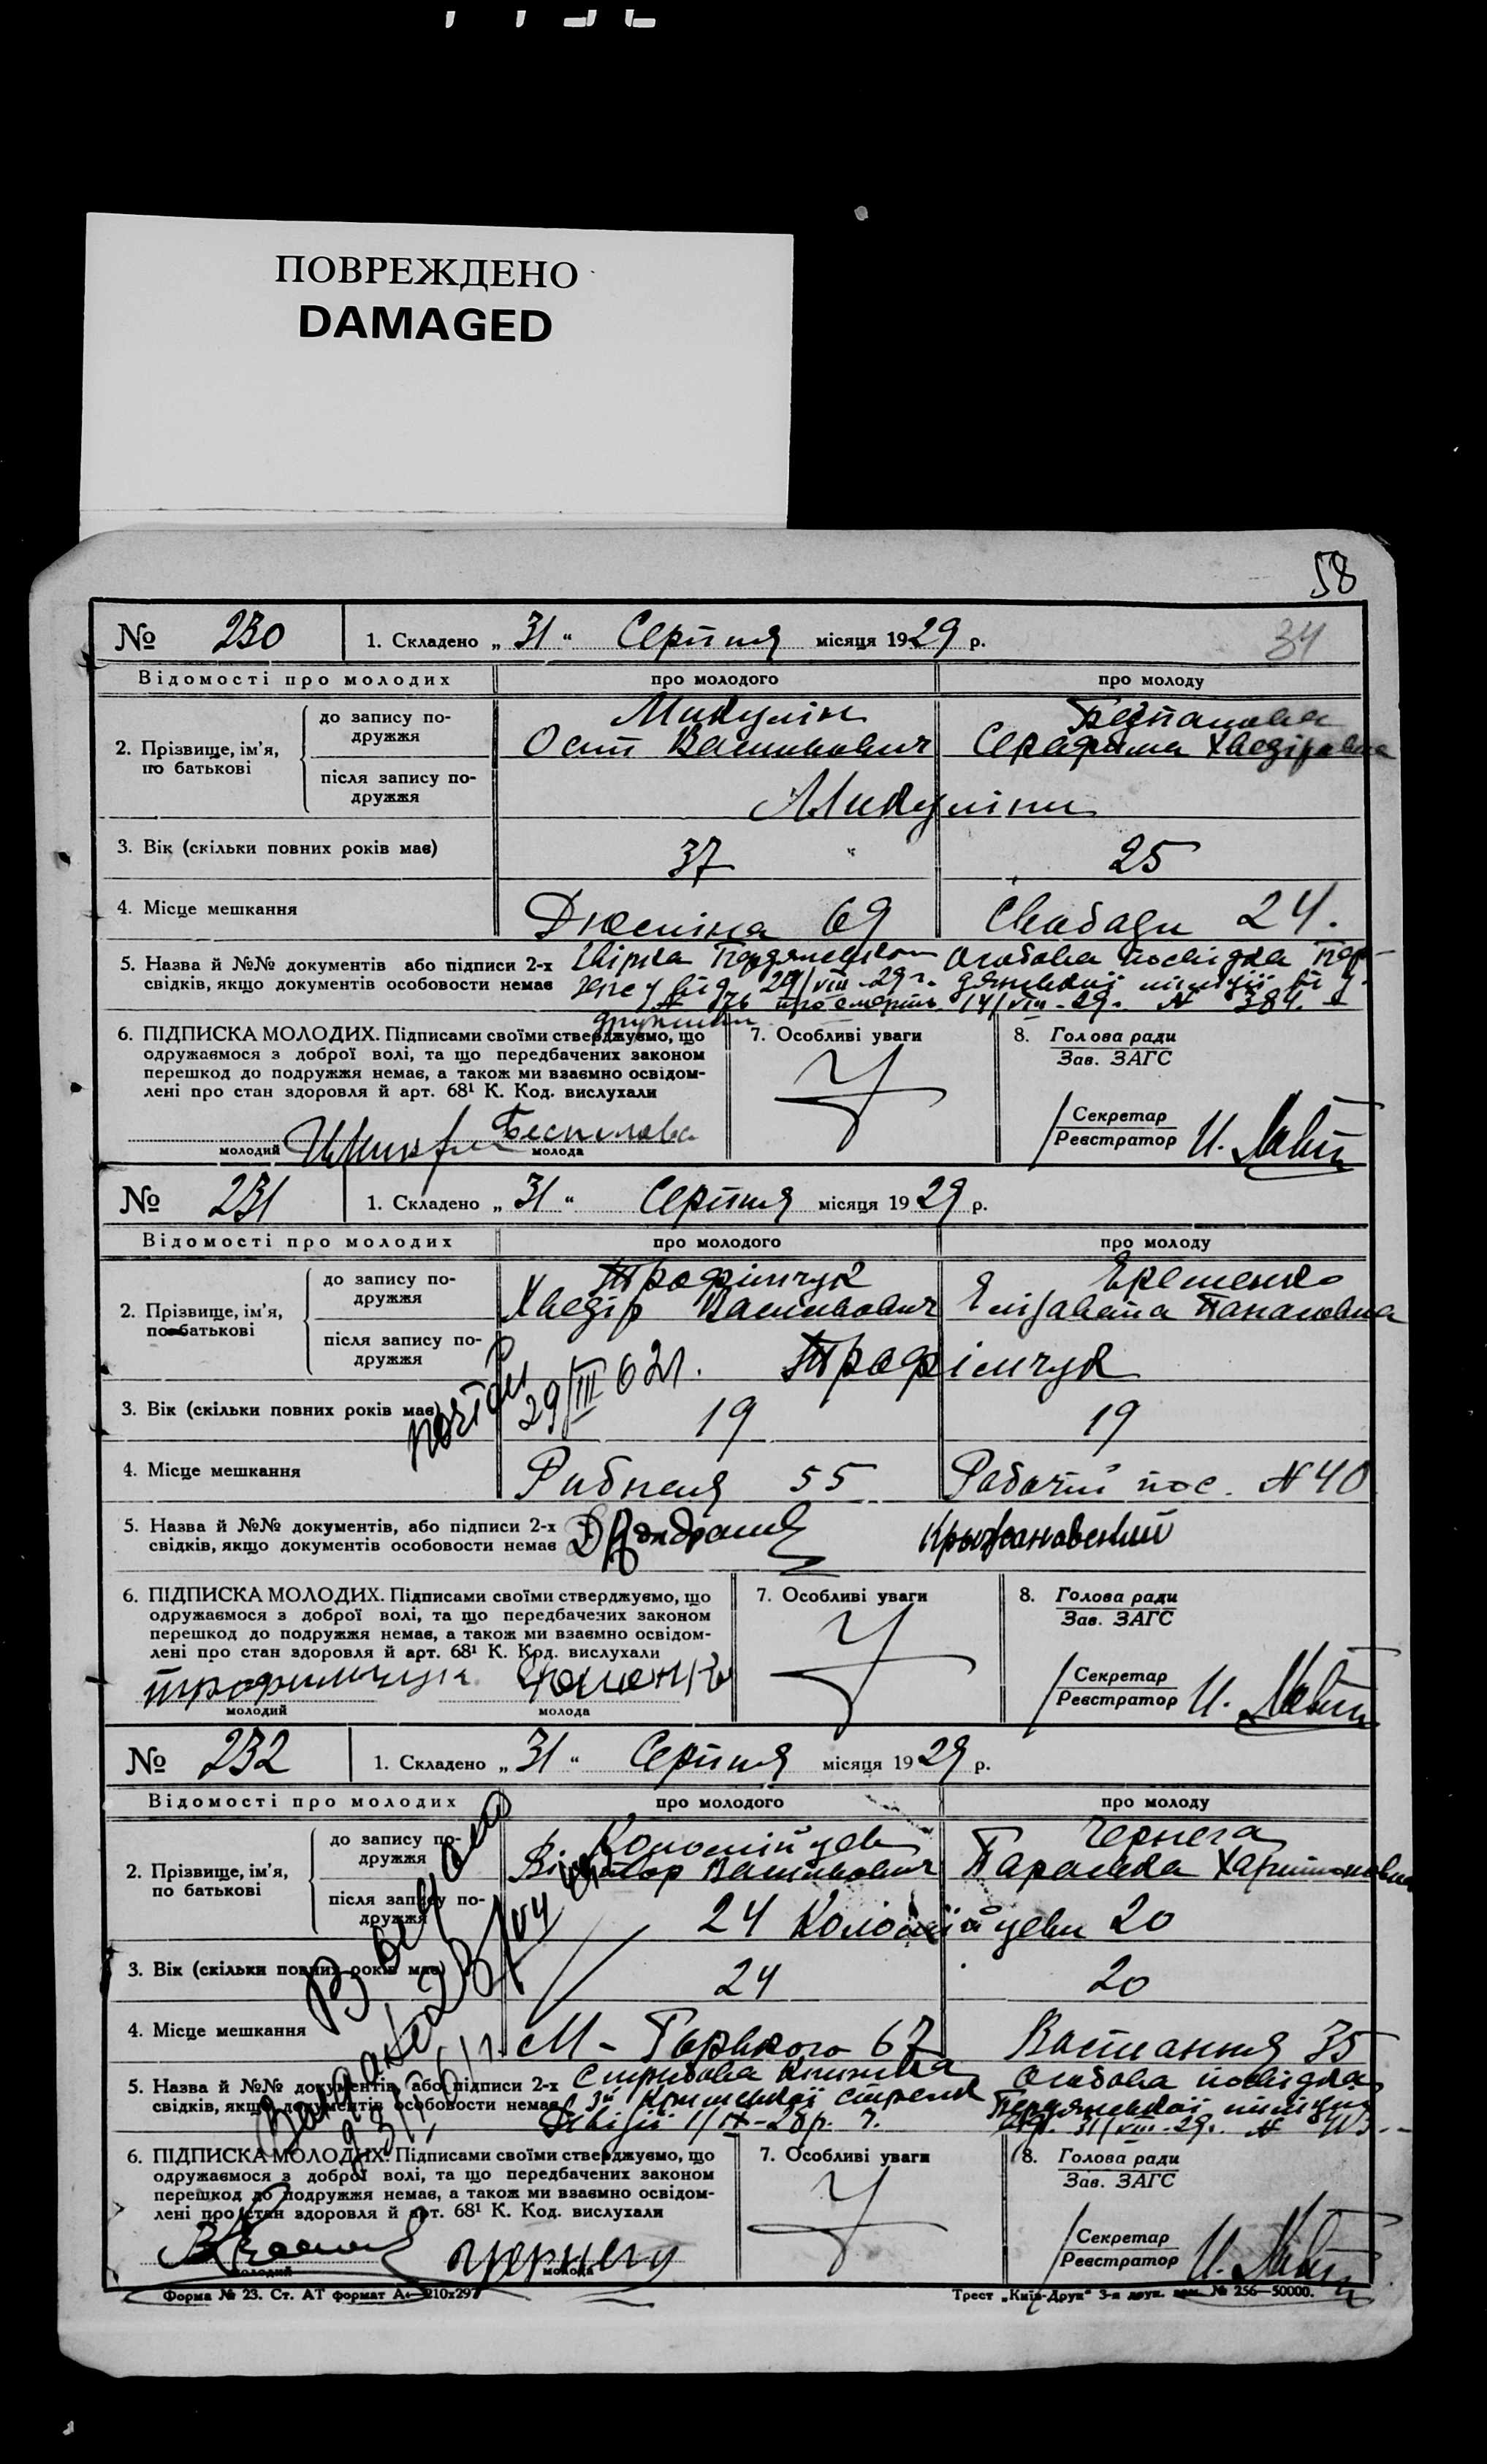 ПОВРЕЖДЕНО
DAMAGED
58
№ 230 1. Складено „ 31 “ Серпня місяця 1929 р. 34
Відомості про молодих про молодого про молоду
2. Прізвище, ім’я, по батькові до запису подружжя Микулін Осип Васильович Серафима Хведіровна
після запису подружжя Микуліни
3. Вік (скільки повних років має) 37 25
4. Місце мешкання Дюміна 69 Свабади 24.
5. Назва й №№ документів або підписи 2-х
свідків, якщо документів особовости немає
від 29/VIII-29 р. про смерть дружини Особова посвідка 14/VIII-29. N 384.
6. ПІДПИСКА МОЛОДИХ. Підписами своїми стверджуємо, що 7. Особливі уваги 8. Голова ради
одружаємося з доброї волі, та що передбачених законом Зав. ЗАГС
перешкод до подружжя немає, а також ми взаємно освідом-
лені про стан здоровля й арт. 68¹ К. Код. вислухали
Секретар
Реєстратор
молодий молода
№ 231 1. Складено „ 31 “ Серпня місяця 1929 р.
Відомості про молодих про молодого про молоду
2. Прізвище, ім’я, по батькові до запису подружжя Трафімчук Хведір Васильович Еременко Єлізавета Панасовна
після запису подружжя Трафімчук
29/III
3. Вік (скільки повних років має) 19 19
4. Місце мешкання Рибнея 55 Рабочий пос. N 40
5. Назва й №№ документів, або підписи 2-х
свідків, якщо документів особовости немає Крыжановский
6. ПІДПИСКА МОЛОДИХ. Підписами своїми стверджуємо, що 7. Особливі уваги 8. Голова ради
одружаємося з доброї волі, та що передбачених законом Зав. ЗАГС
перешкод до подружжя немає, а також ми взаємно освідом-
лені про стан здоровля й арт. 68¹ К. Код. вислухали
трофимчук
Секретар
Реєстратор
молодий молода
№ 232 1. Складено „ 31 “ Серпня місяця 1929 р.
Відомості про молодих про молодого про молоду
2. Прізвище, ім’я, по батькові до запису подружжя Коломійцев Віктор Васильович Чернега Параска Харитоновна
після запису подружжя 24 Коломійцеви 20
3. Вік (скільки повних років має) 24 20
4. Місце мешкання М-Горького 67 Повстання 35
5. Назва й №№ документів або підписи 2-х
свідків, якщо документів особовости немає
книжка Кримської стрелк Девізії 1/IX-28р. Особова посвідка Бердянської міліції 31/VIII-29.
6. ПІДПИСКА МОЛОДИХ. Підписами своїми стверджуємо, що 7. Особливі уваги 8. Голова ради
одружаємося з доброї волі, та що передбачених законом Зав. ЗАГС
перешкод до подружжя немає, а також ми взаємно освідом-
лені про стан здоровля й арт. 68¹ К. Код. вислухали
Секретар
Реєстратор
молодий молода
Форма № 23. Ст. АТ формат А₄—210х297 Трест „Київ-Друк“ 3-я друк. зам. № 256—50000.